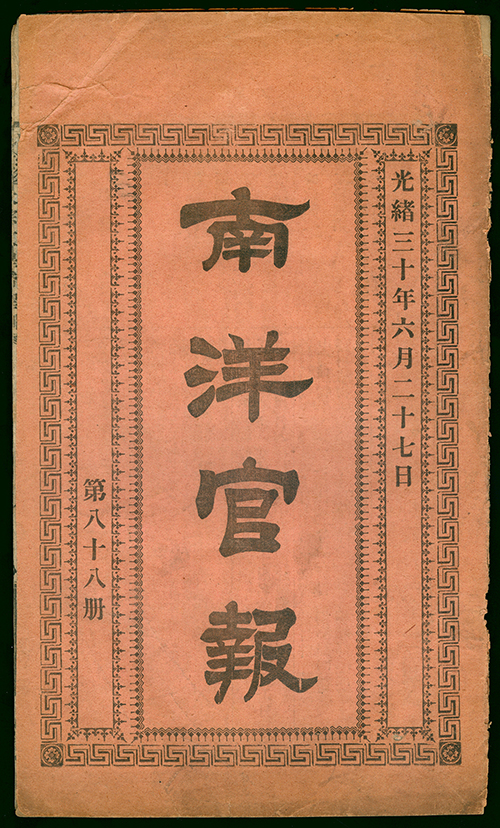 光緒三十年六月二十七日
南洋官報
第八十八册